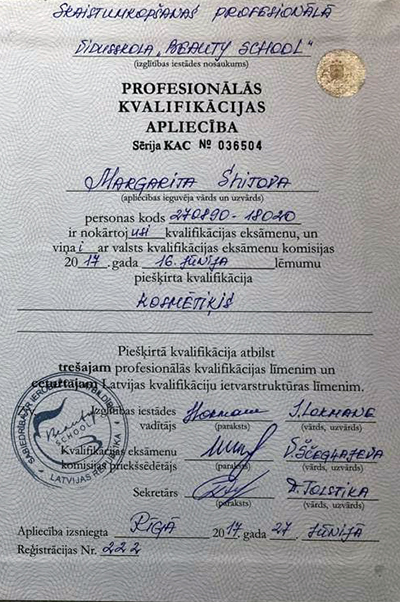 SKAISTUMKOPŠANAS PROFESIONĀLĀ
VIDUSSKOLA „BEAUTY SCHOOL"
(izglītības iestādes nosaukums)
PROFESIONĀLĀS
KVALIFIKĀCIJAS
APLIECĪBA
Sērija KAC № 036504
MARGARITA
(apliecības ieguvēja vārds un uzvārds)
personas kods 270890-18020
ir nokārtojusi kvalifikācijas eksāmenu, un
viņai ar valsts kvalifikācijas eksāmenu komisijas
2017. gada 16. JŪNIJA lēmumu
piešķirta kvalifikācija
KOSMĒTIĶIS
Piešķirtā kvalifikācija atbilst
trešajam profesionālās kvalifikācijas līmenim un
ceturtajam Latvijas kvalifikāciju ietvarstruktūras līmenim.
Izglītības iestādes
vadītājs
(paraksts)
I. LOKMANE
(vārds, uzvārds)
Kvalifikācijas eksāmenu
komisijas priekšsēdētājs
(paraksts)
(vārds, uzvārds)
Sekretārs
(paraksts)
TOLSTIKA
(vārds, uzvārds)
Beauty
SCHOOL
LATVIJAS REPUBLIKA
Apliecība izsniegta RĪGĀ 2017. gada 27. JŪNIJĀ
Reģistrācijas Nr. 222